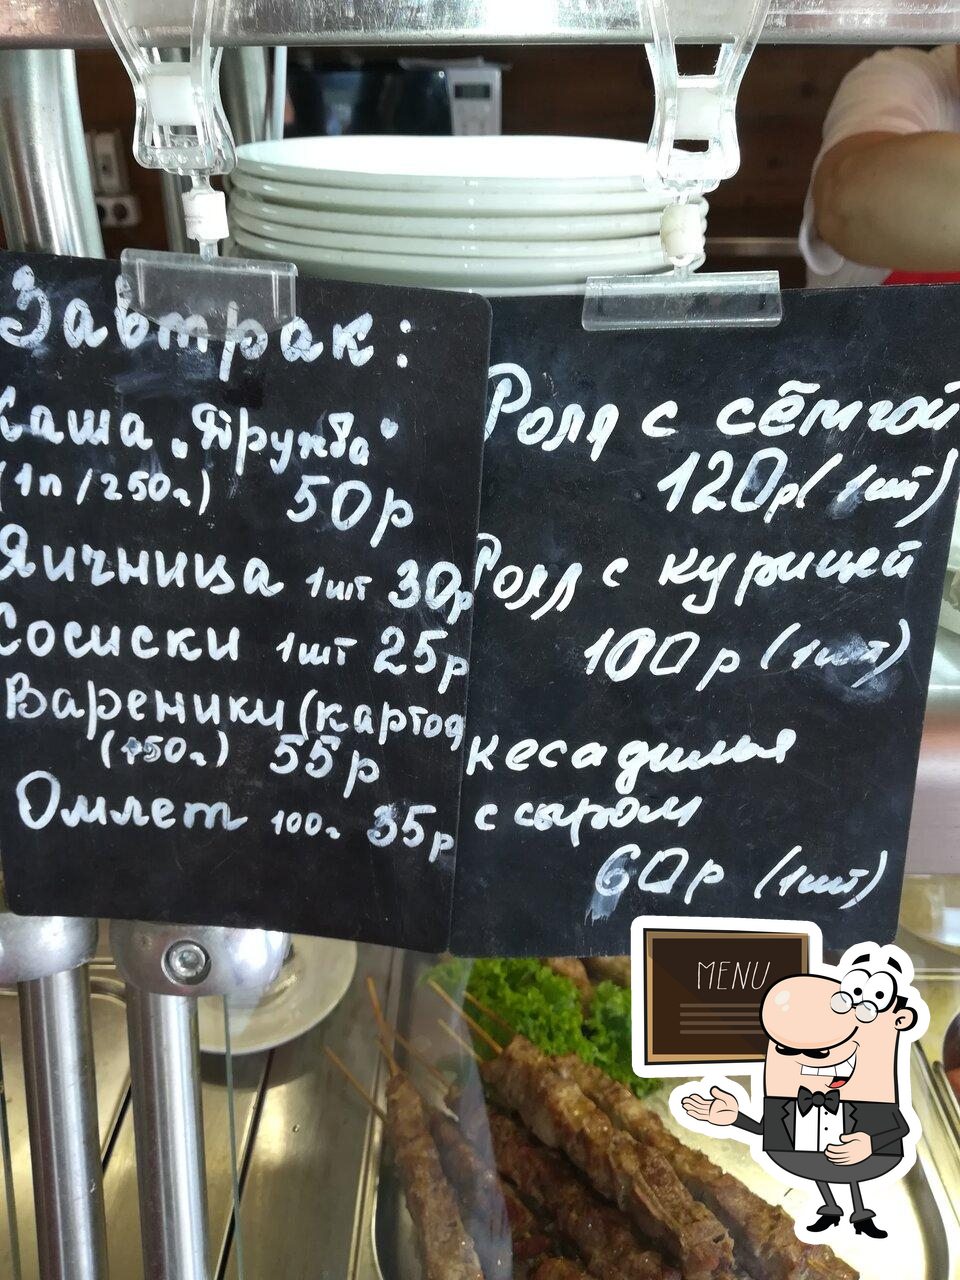 Завтрак:
Каша „Дружба"
(1п/250г) 50р
Яичница 1шт 30р
Сосиски 1шт 25р
Вареники (картоф
(150г) 55р
Омлет 100г 35р
Ролл с сёмгой
120р (1шт)
Ролл с курицей
100р (1шт)
кесадилья
с сыром
60р (1шт)
MENU